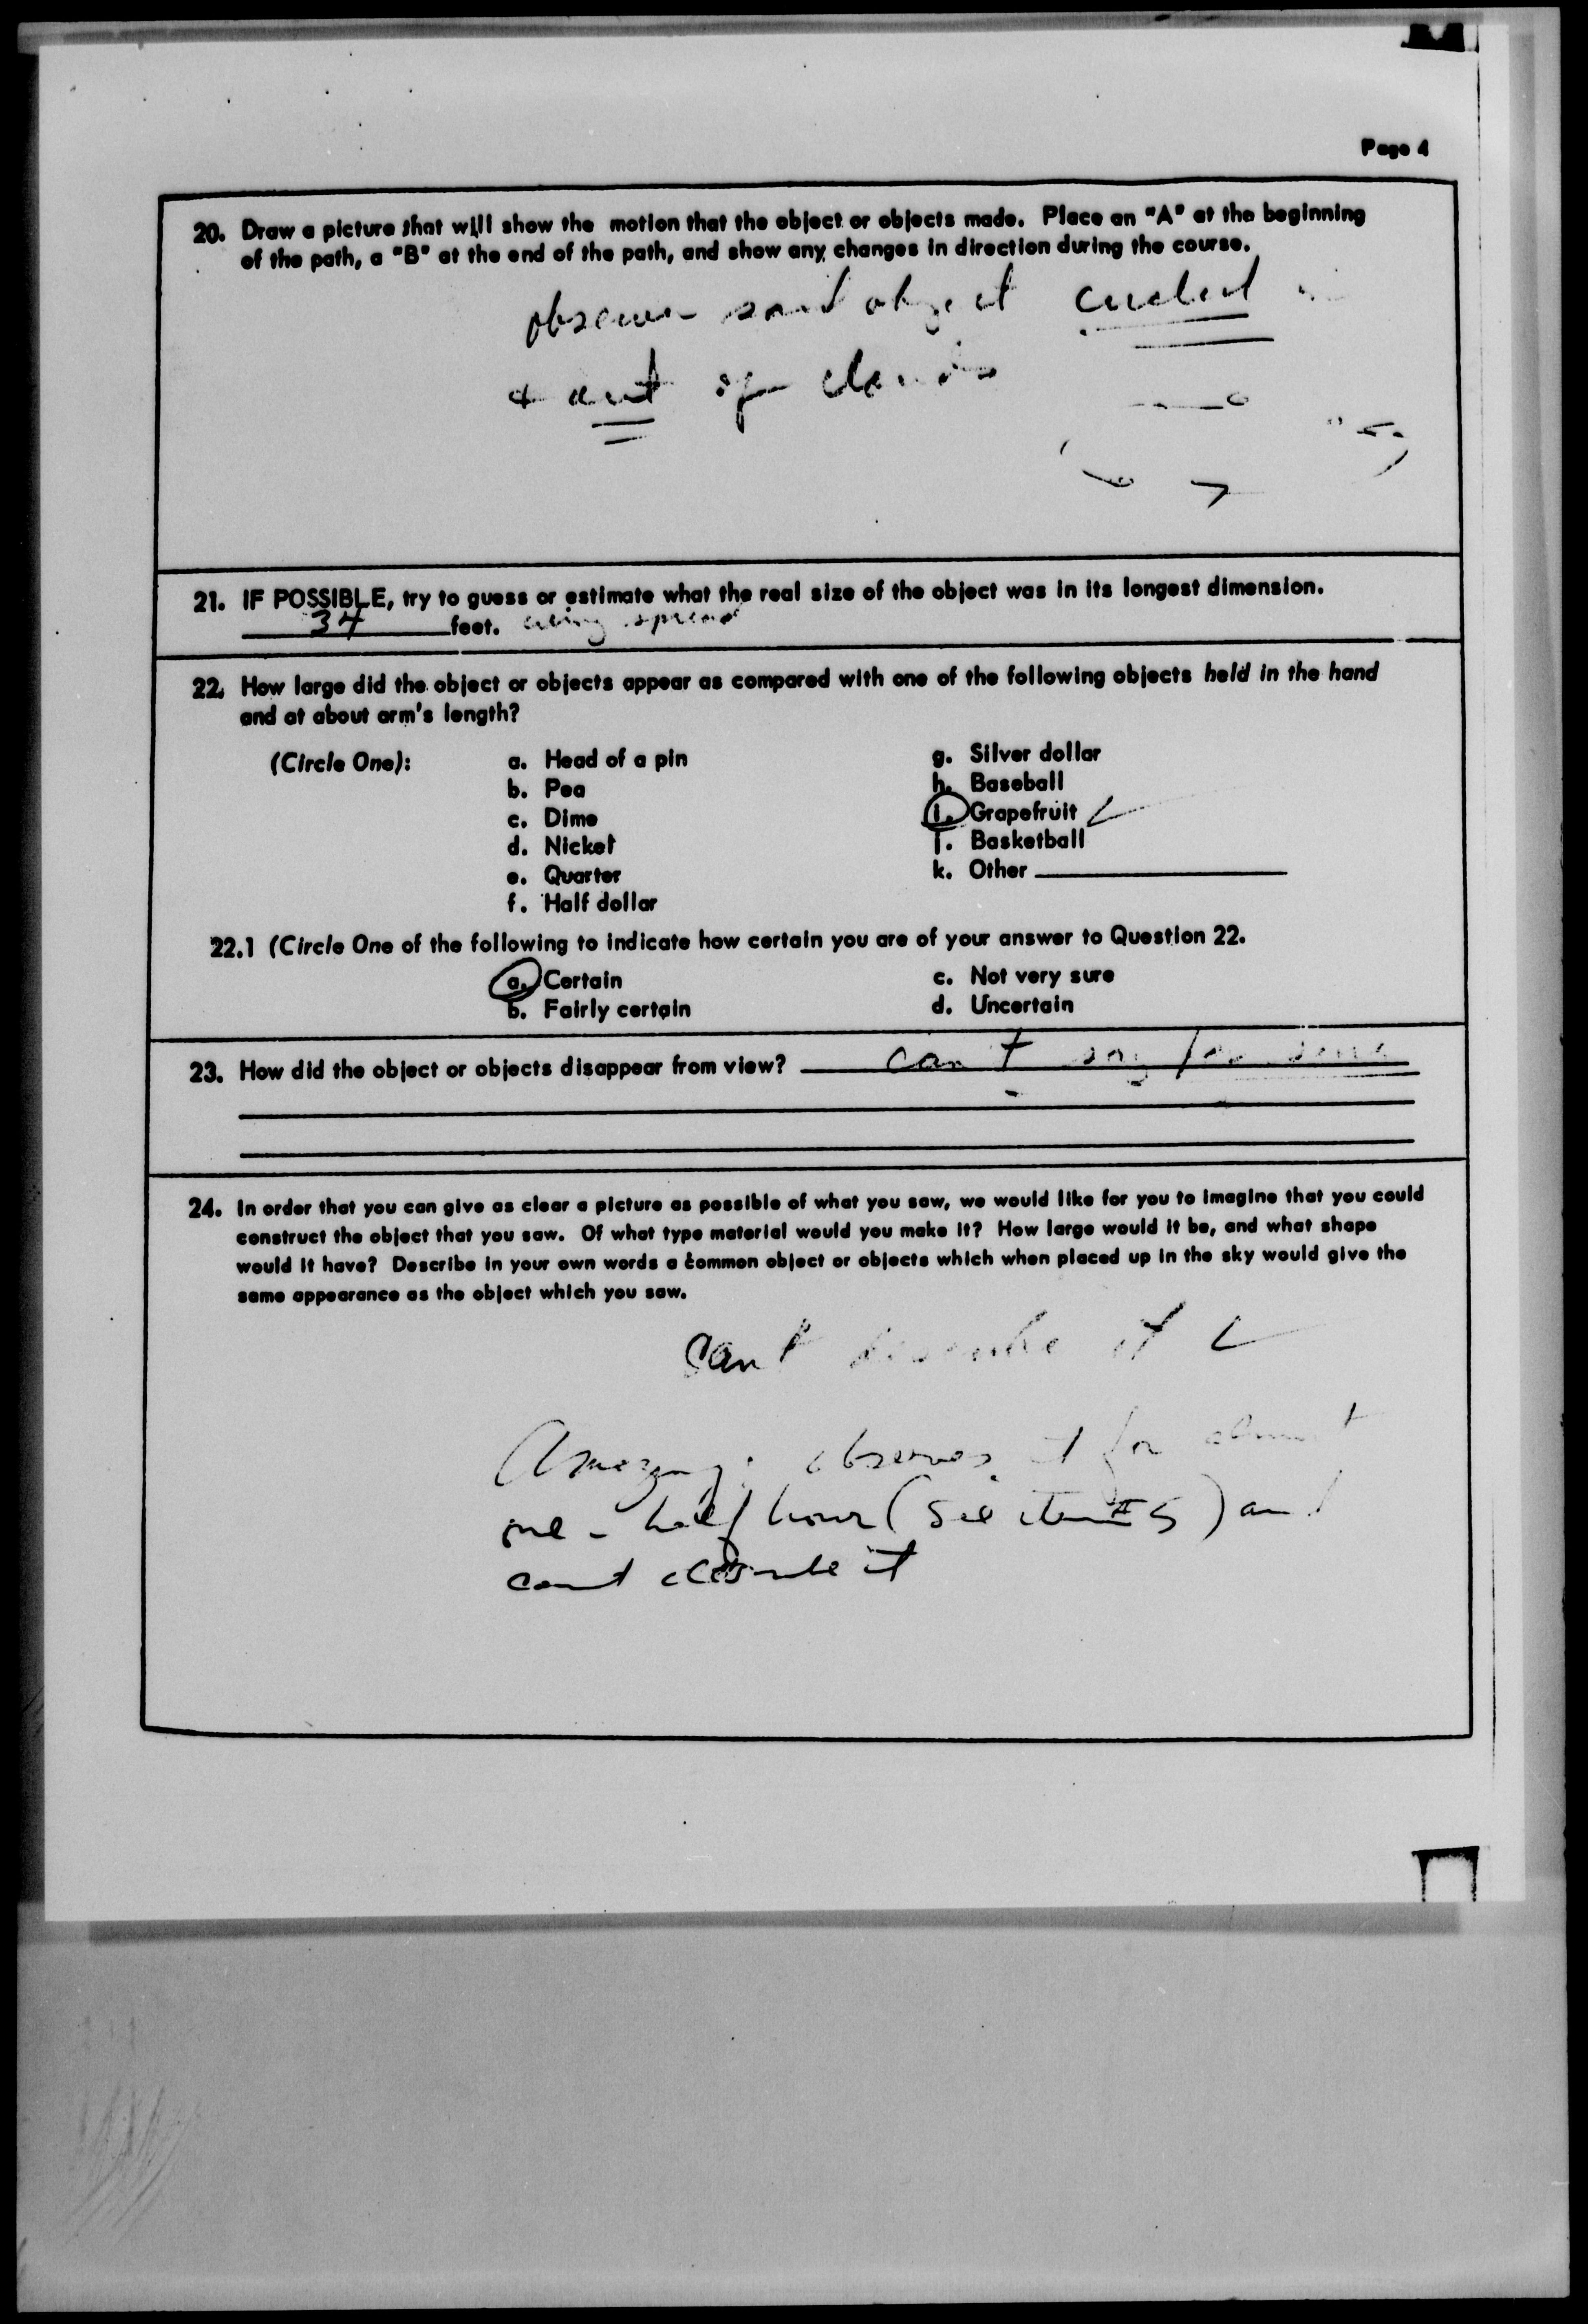 Page 4
20. Draw a picture that will show the motion that the object or objects made. Place an "A" at the beginning
of the path, a "B" at the end of the path, and show any changes in direction during the course.
observer said object circled
& out of clouds
21. IF POSSIBLE, try to guess or estimate what the real size of the object was in its longest dimension.
34 feet. wing spread
22. How large did the object or objects appear as compared with one of the following objects held in the hand
and at about arm's length?
(Circle One):
a. Head of a pin
b. Pea
c. Dime
d. Nickel
e. Quarter
f. Half dollar
g. Silver dollar
h. Baseball
i. Grapefruit
j. Basketball
k. Other
22.1 (Circle One of the following to indicate how certain you are of your answer to Question 22.
a. Certain
b. Fairly certain
c. Not very sure
d. Uncertain
23. How did the object or objects disappear from view? can't say for sure
24. In order that you can give as clear a picture as possible of what you saw, we would like for you to imagine that you could
construct the object that you saw. Of what type material would you make it? How large would it be, and what shape
would it have? Describe in your own words a common object or objects which when placed up in the sky would give the
same appearance as the object which you saw.
Can't describe it
Amazing: observes it for almost
one-half hour (see item #5) and
can't describe it